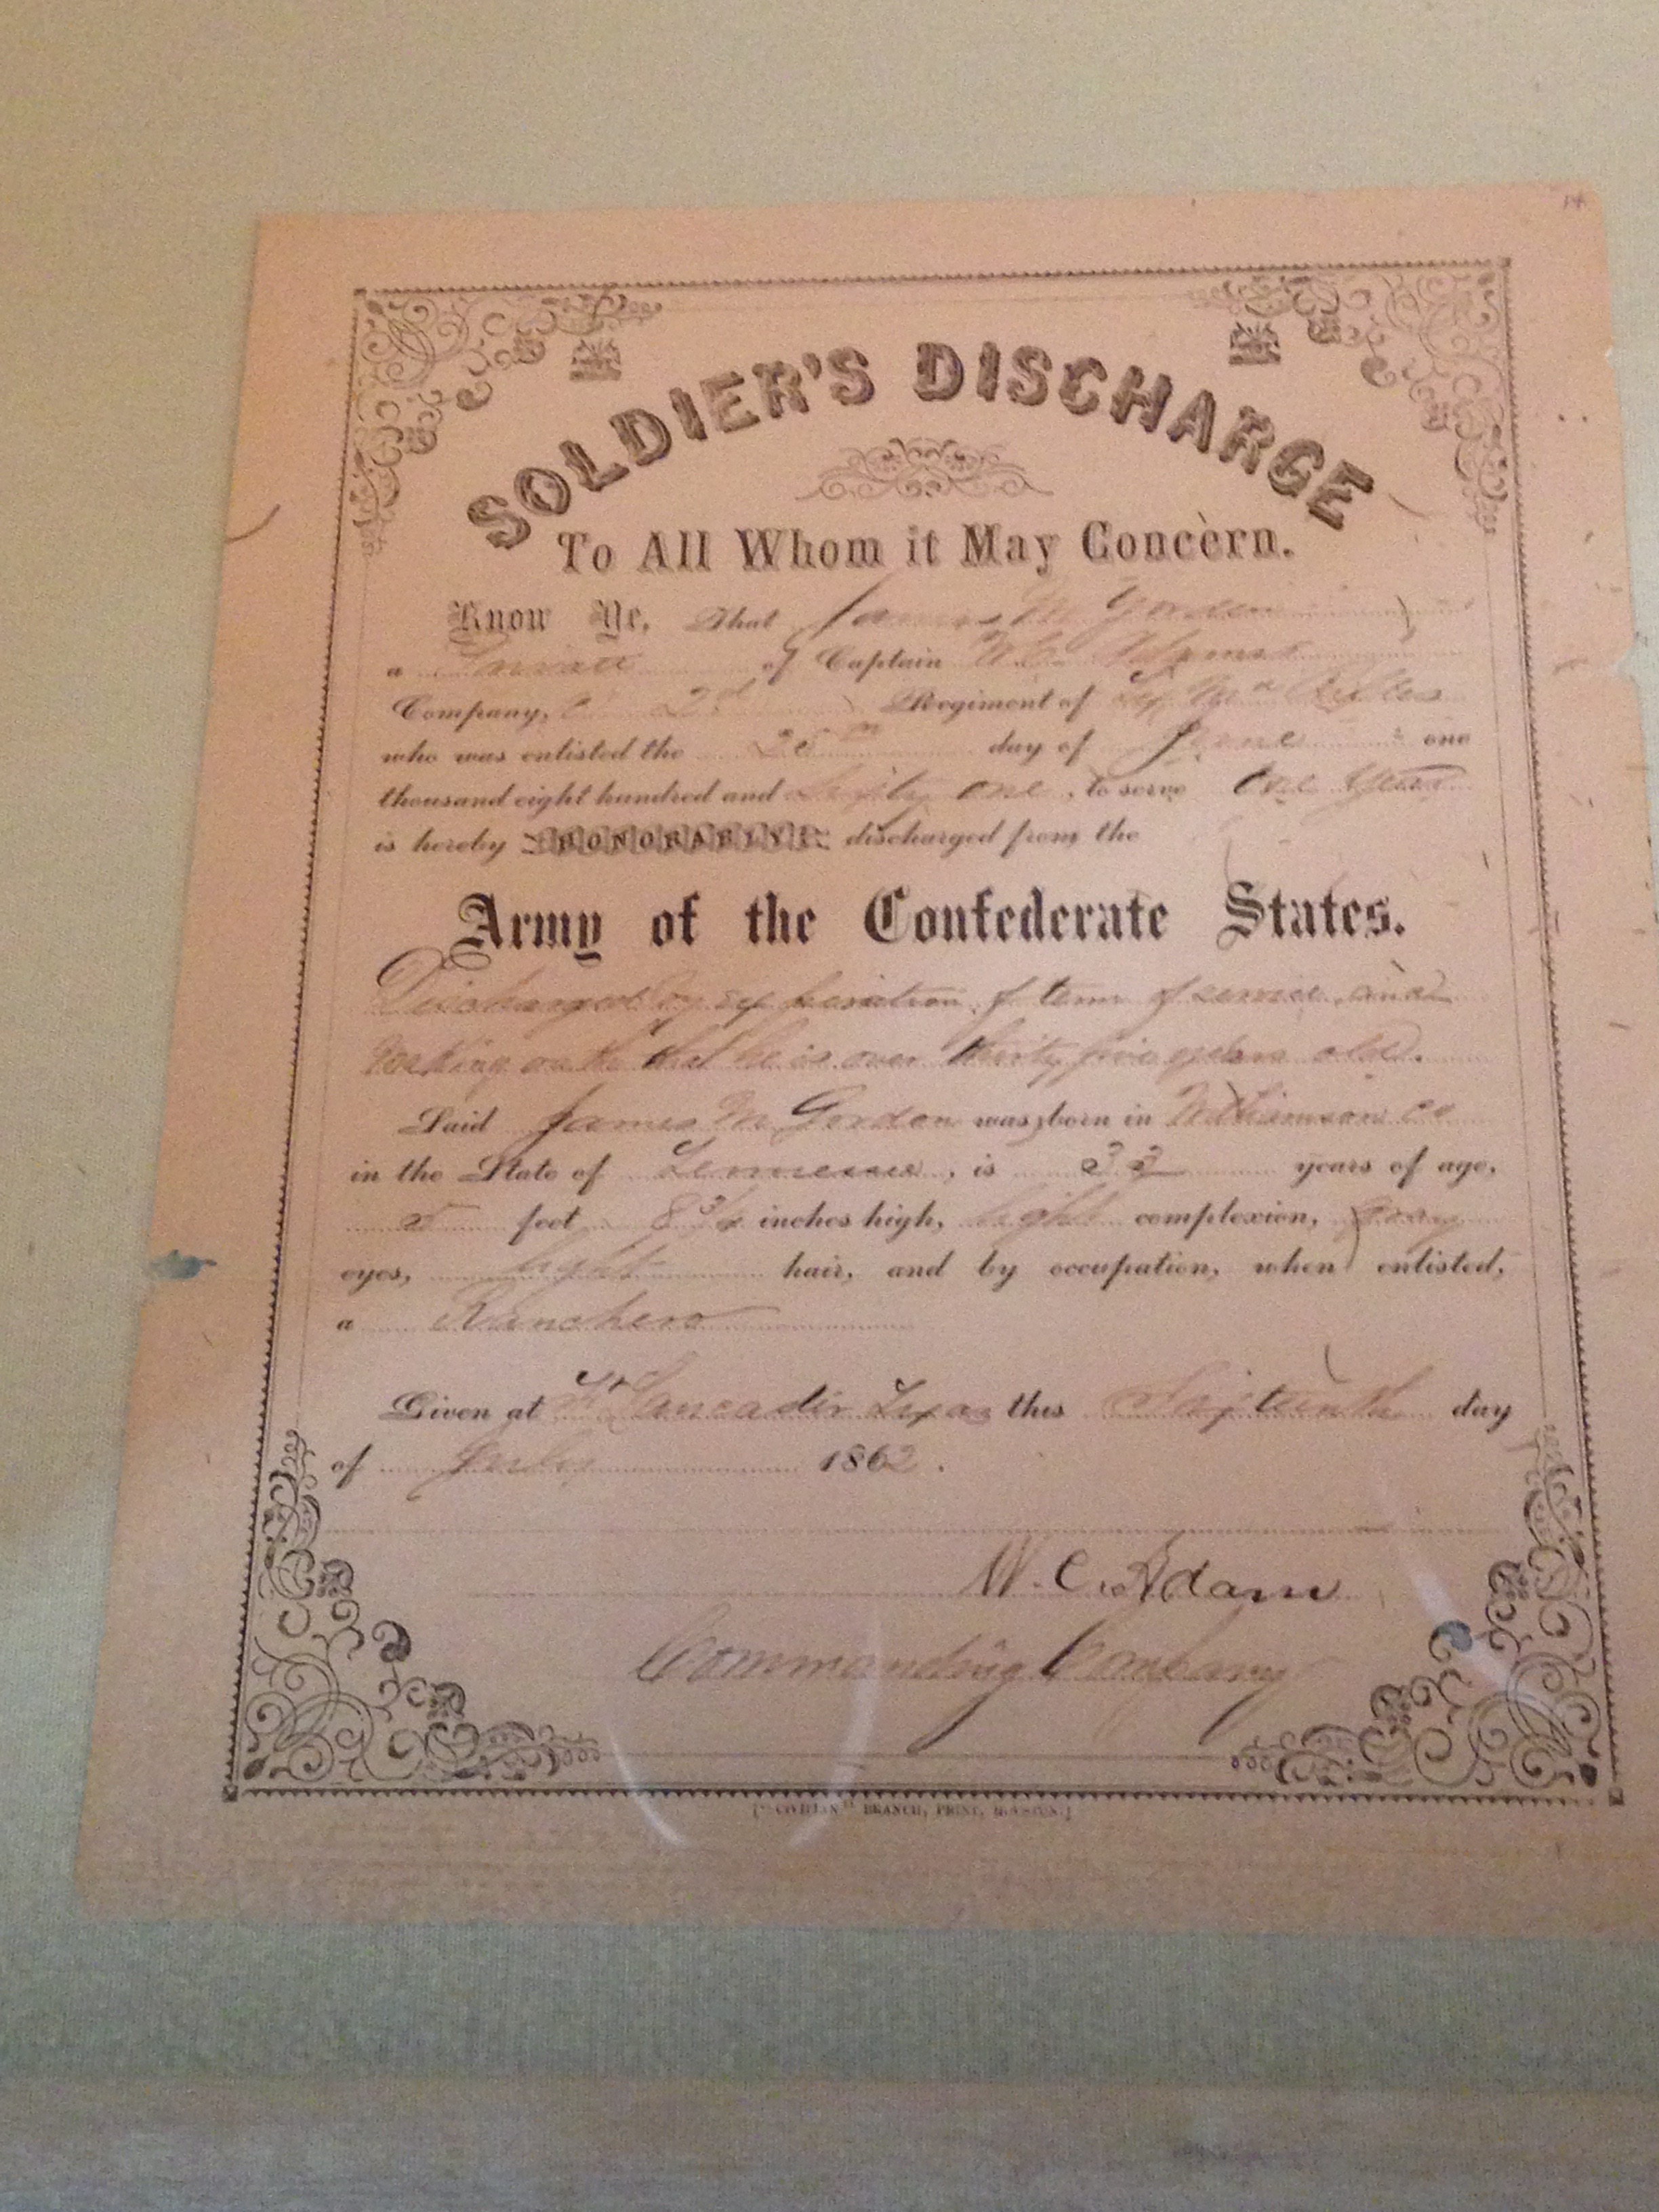 SOLDIER'S DISCHARGE
To All Whom it May Concern.
Know Ye, That James M Gordon
a Private of Captain W.C. Adams
Company, C 2d Regiment of Tx Md Rifles
who was enlisted the day of June one
thousand eight hundred and Sixty one, to serve One Year
is hereby HONORABLY discharged from the
Army of the Confederate States.
Discharged by expiration of term of service, and
making oath that he is over thirty five years old.
Said James M Gordon was born in Williamson co
in the State of Tennessee, is years of age,
5 feet 8 3/4 inches high, light complexion, gray
eyes, light hair, and by occupation, when enlisted,
a Ranchero
Given at Ft Lancaster Texas this Sixteenth day
of July 1862.
W. C. Adams
Commanding Company
["CIVILIAN" BRANCH, PRINT, HOUSTON.]